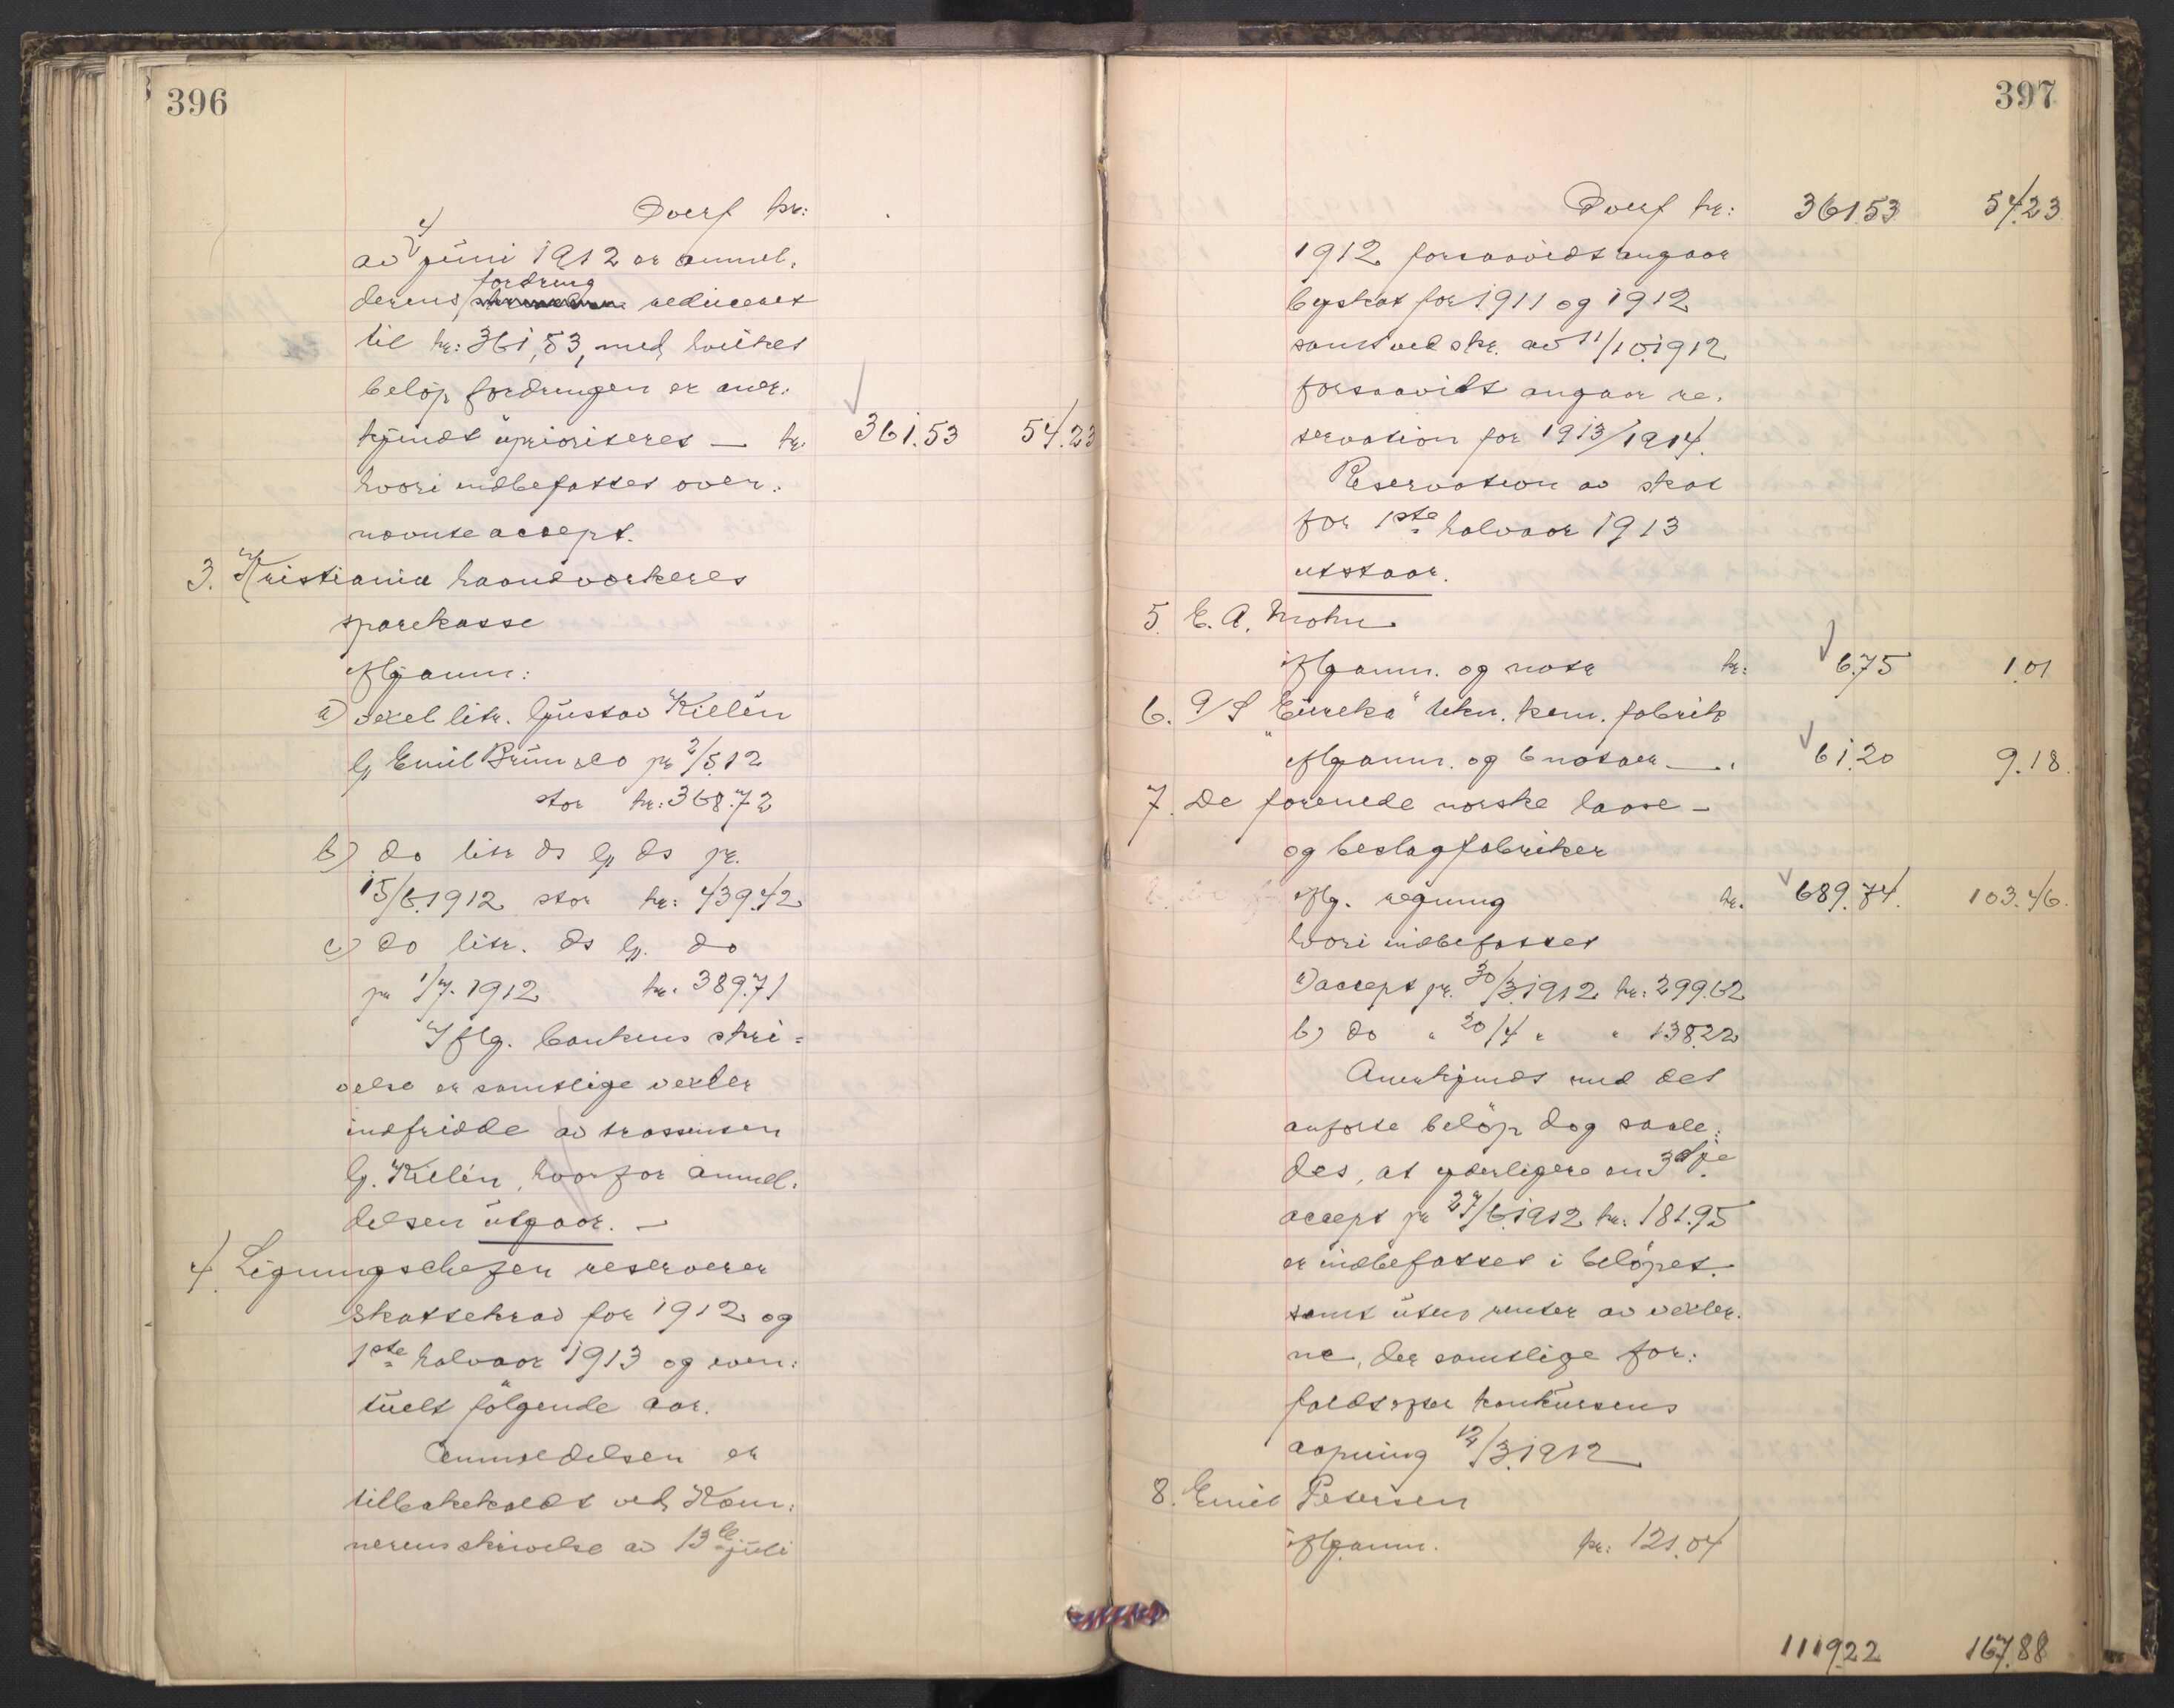 396
Overf kr:
av 4 juni 1912 er anmel-
derens fordring reduceret
til kr: 361,53, med hvilket
beløp fordringen er aner-
kjendt uprioritert — kr. 361.53 54.23
hvori indbefattet oven-
nævnte accept.
3. Kristiania haandverkeres
sparekasse
iflg anm:
a) vexel litr. Gustav Kielén
E/ Emil Bruun & Co pr 2/5.12
stor kr: 368.72
b) do litr do E/ do pr.
15/6.1912 stor kr: 439.42
c) do litr. do E/. do
pr 1/7. 1912 kr. 389.71
Iflg. bankens skri-
velse er samtlige vexler
indfridde av trassenten
G. Kielén, hvorfor anmel-
delsen utgaar. —
4. Ligningschefen reserverer
skattekrav for 1912 og
1ste halvaar 1913 og even-
tuelt følgende aar.
Anmeldelsen er
tilbakekaldt ved Kem-
nerens skrivelse av 13de juli
397
Overf kr: 361.53 54.23
1912 forsaavidt angaar
byskat for 1911 og 1912
samt ved skr. av 11/10.1912
forsaavidt angaar re-
servation for 1913/1914.
Reservation av skat
for 1ste halvaar 1913
utstaar.
5. E. A. Mohn
iflg anm. og nota kr: 6.75 1.01
6. A/S "Eureka" tekn. kem. fabrik
iflg anm. og 6 notaer — " 61.20 9.18.
7. De forenede norske laase-
og beslagfabriker
iflg. regning kr. 689.74. 103.46.
hvori indbefattet
a) accept pr. 30/3.1912 kr: 299.62
b) do " 20/4 " " 138.22
Anerkjendt med det
anførte beløp dog saale-
des, at yderligere en 3dje
accept pr 27/6.1912 kr: 181.95
er indbefattet i beløpet.
samt uten renter av vexler-
ne, der samtlige for-
faldt efter konkursens
aapning 12/3.1912
8. Emil Petersen
iflg anm. kr: 121.04
1119.22 167.88